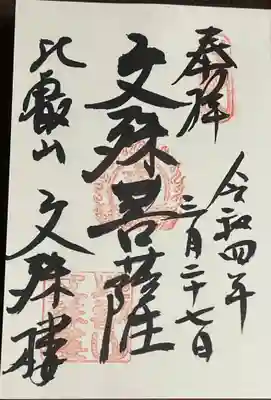 奉拝
令和四年
三月二十七日
文殊菩薩
比叡山
文殊楼